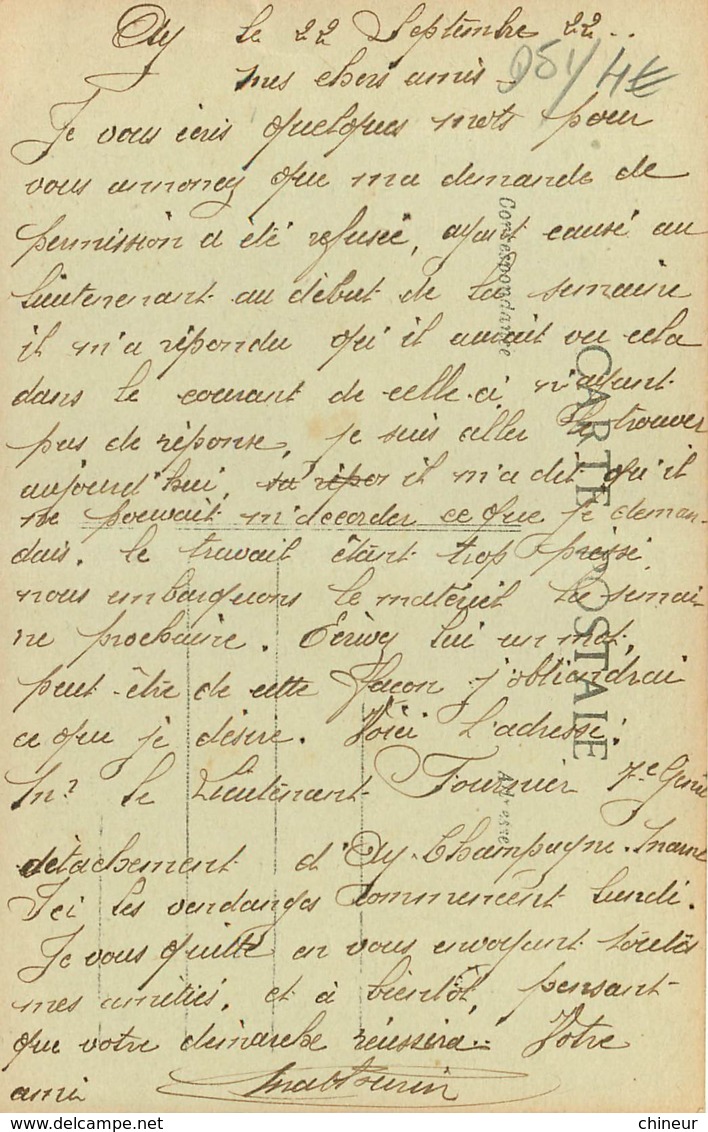 Ay le 22 Septembre 22..
mes chers amis.
951/ 4€
Je vous écris quelques mots pour
vous annoncez que ma demande de
permission a été refusée, ayant causé au
lieutenant au début de la semaine
il m'a répondu qu'il aurait vu cela
dans le courant de celle-ci, n'ayant
pas de réponse, je suis aller le trouver
aujourd'hui, sa répon il m'a dit qu'il
ne pouvait m'accorder ce que je deman-
dais. le travail étant trop pressé
nous embarquons le matériel la semai
ne prochaine. Écrivez lui un mot,
peut-être de cette façon j'obtiandrai
ce que je désire. Voici l'adresse:
Mr le Lieutenant Fournier 7e Génie
détachement d'Ay-Champagne. Marne
Ici les vendanges commencent lundi.
Je vous quitte en vous envoyant toutes
mes amitiés, et à bientôt, pensant
que votre démarche réussira.. Votre
ami Mathurin
CARTE POSTALE
Correspondance
Adresse
chineur